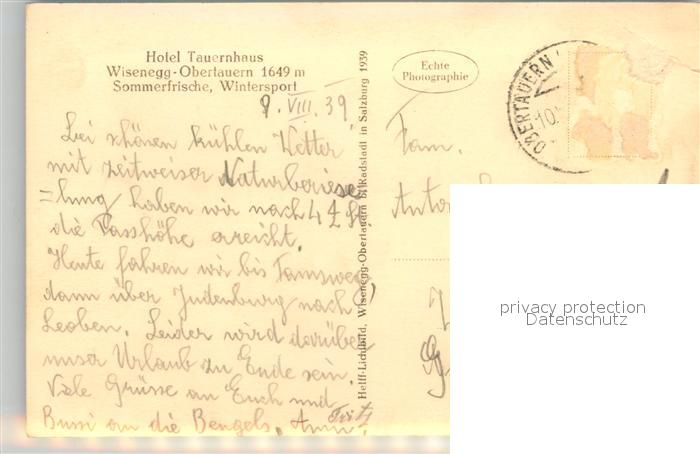 Hotel Tauernhaus
Wisenegg-Obertauern 1649 m
Sommerfrische, Wintersport
9. VIII. 39
Bei schönen kühlen Wetter
mit zeitweiser Naturberiese
=lung haben wir nach 4 ½ St.
die Passhöhe erreicht.
Heute fahren wir bis Tamsweg
dann über Judenburg nach
Leoben. Leider wird darüber
unser Urlaub zu Ende sein.
Viele Grüsse an Euch und
Bussi an die Bengels. Fritz
Helff-Lichtbild, Wisenegg-Obertauern b. Radstadt in Salzburg 1939
Echte
Photographie
OBERTAUERN
10.
Fam.
privacy protection
Datenschutz